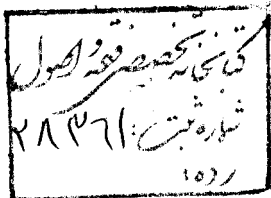 کتابخانه تخصصی فقه و اصول
شماره ثبت: ۲۸۳۶۱
رده: